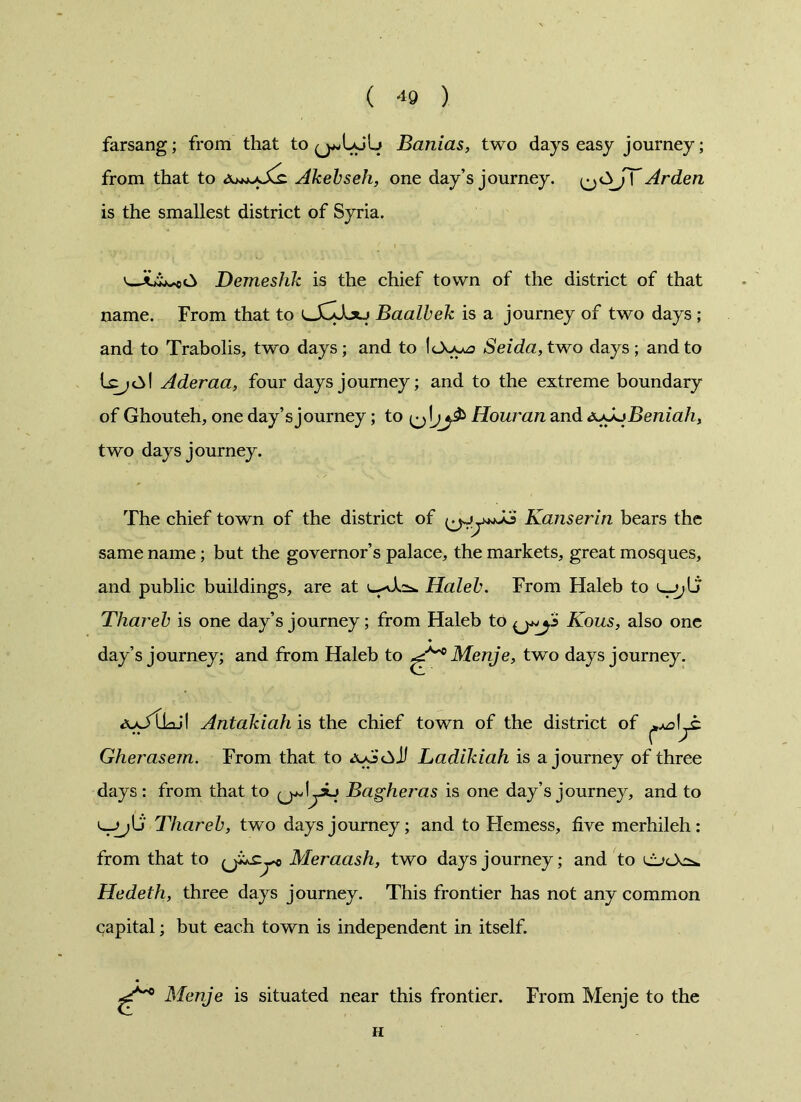 ( 49 )
farsang; from that to بانياس Banias, two days easy journey;
from that to عكبسه Akebseh, one day’s journey. آردن Arden
is the smallest district of Syria.
دمشق Demeshk is the chief town of the district of that
name. From that to بعلبك Baalbek is a journey of two days;
and to Trabolis, two days; and to صيدا Seida, two days; and to
ادرعا Aderaa, four days journey; and to the extreme boundary
of Ghouteh, one day’s journey; to هوران Houran and بنيه Beniah,
two days journey.
The chief town of the district of قنسرين Kanserin bears the
same name; but the governor’s palace, the markets, great mosques,
and public buildings, are at حلب Haleb. From Haleb to تارب
Thareb is one day’s journey; from Haleb to قوس Kous, also one
day’s journey; and from Haleb to منج Menje, two days journey.
انطاكيه Antakiah is the chief town of the district of غراصم
Gherasem. From that to لادقيه Ladikiah is a journey of three
days: from that to بغراس Bagheras is one day’s journey, and to
تارب Thareb, two days journey; and to Hemess, five merhileh:
from that to مرعش Meraash, two days journey; and to حدث
Hedeth, three days journey. This frontier has not any common
capital; but each town is independent in itself.
منج Menje is situated near this frontier. From Menje to the
H